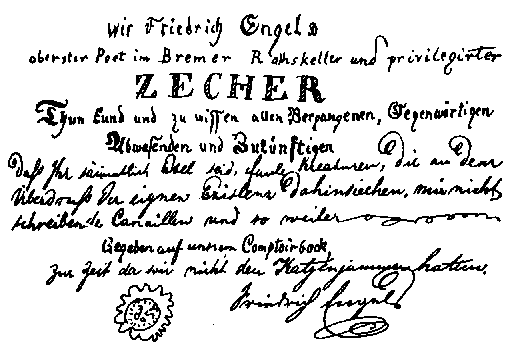 Wir Friedrich Engels
oberster Poet im Bremer Rathskeller und privilegirter
ZECHER
Thun kund und zu wissen allen Vergangenen, Gegenwärtigen
Abwesenden und Zukünftigen
Daß Ihr sämmtlich Esel seid, faule Kreaturen, die an dem
Überdruß der eignen Existenz dahinsiechen, mir nicht
schreibende Canaillen und so weiter
Gegeben auf unserm Comptoirbock
zur Zeit da wir nicht den Katzenjammer hatten.
Friedrich Engels